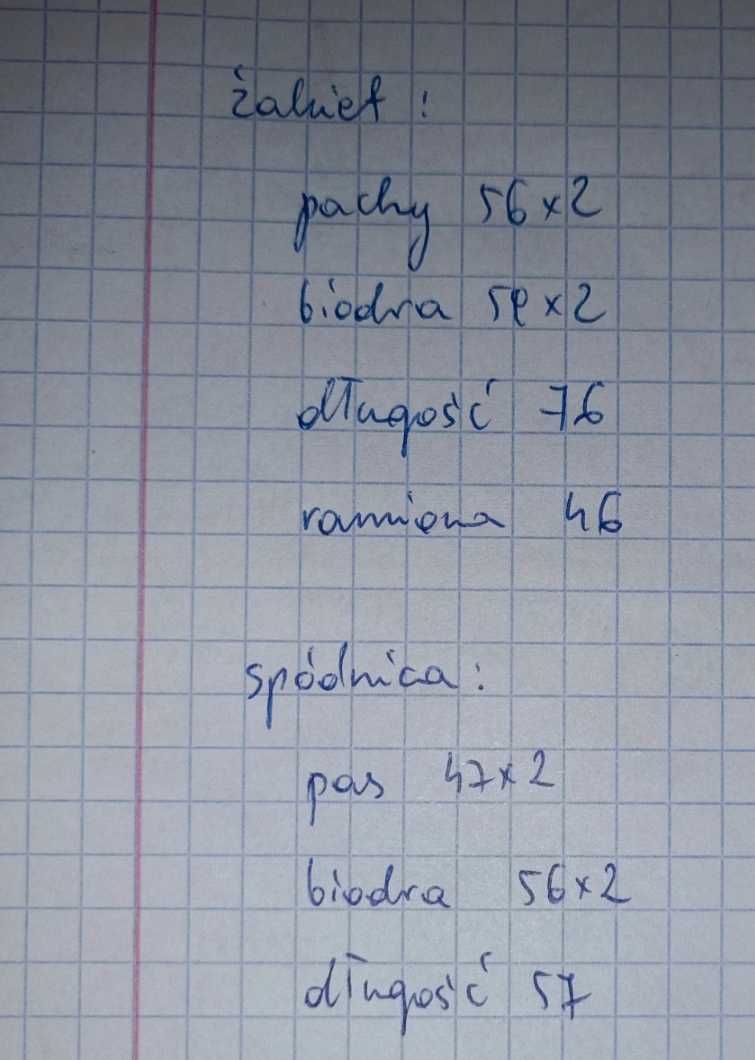 żakiet :
pachy 56x2
biodra 58x2
długość 76
ramiona 46
spódnica :
pas 47x2
biodra 56x2
długość 57